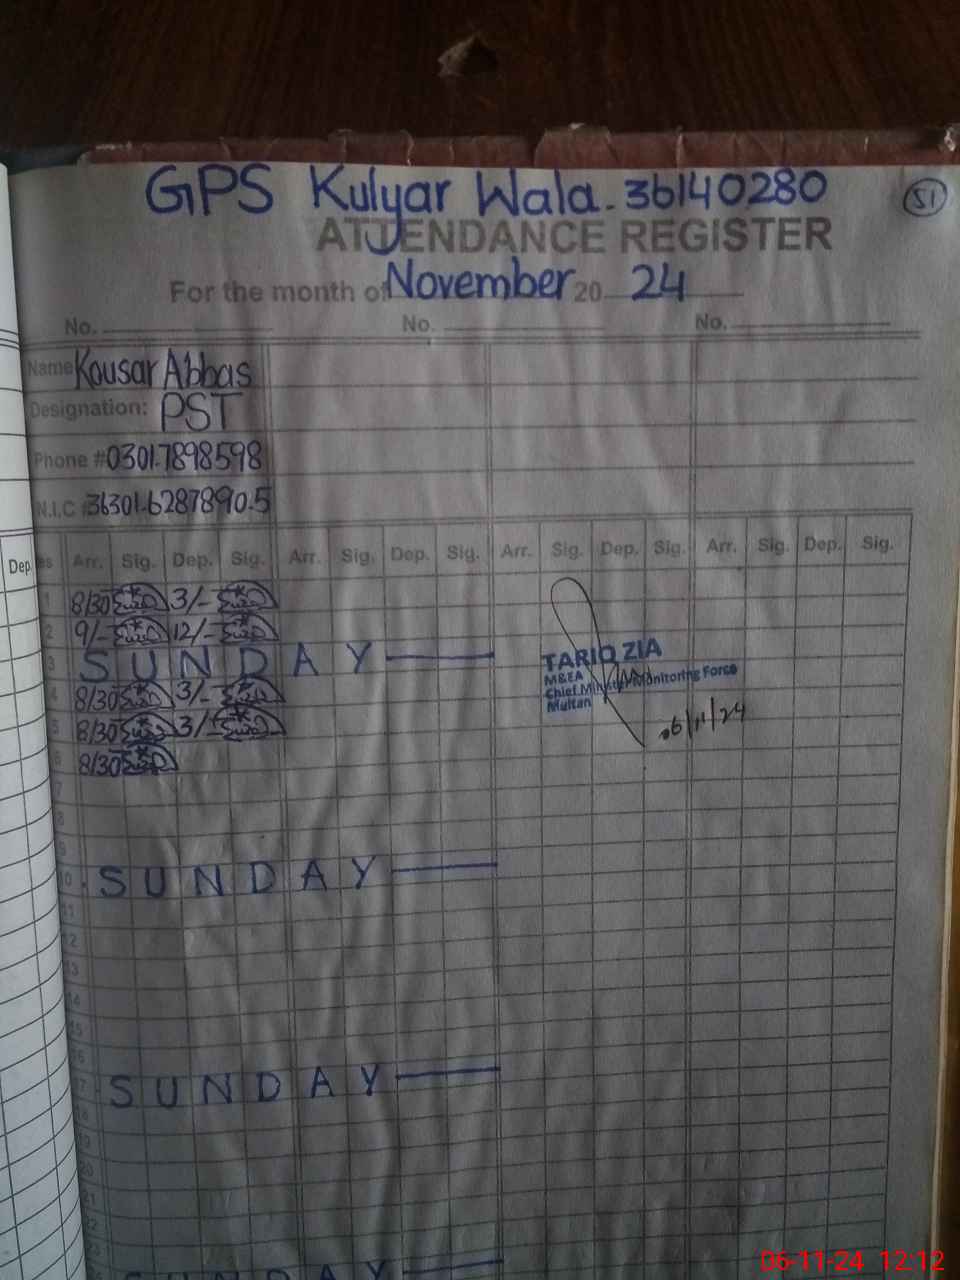 GPS Kulyar Wala. 36140280
51
ATTENDANCE REGISTER
For the month of November 20 24
No. No. No.
Name Kousar Abbas
Designation: PST
Phone # 0301.7898598
N.I.C # 36301.6287890.5
Dep. es Arr. Sig. Dep. Sig. Arr. Sig. Dep. Sig. Arr. Sig. Dep. Sig. Arr. Sig. Dep. Sig.
1 8/30 3/-
2 9/- 12/-
3 SUNDAY
TARIQ ZIA
M&EA
Chief Minister Monitoring Force
Multan
06/11/24
4 8/30 3/-
5 8/30 3/-
6 8/30
7
8
9
10 SUNDAY
11
12
13
14
15
16
17 SUNDAY
18
19
20
21
22
23
SUNDAY
06-11-24 12:12